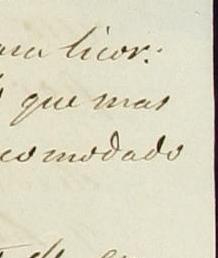 ara licor:
que mas
comodado